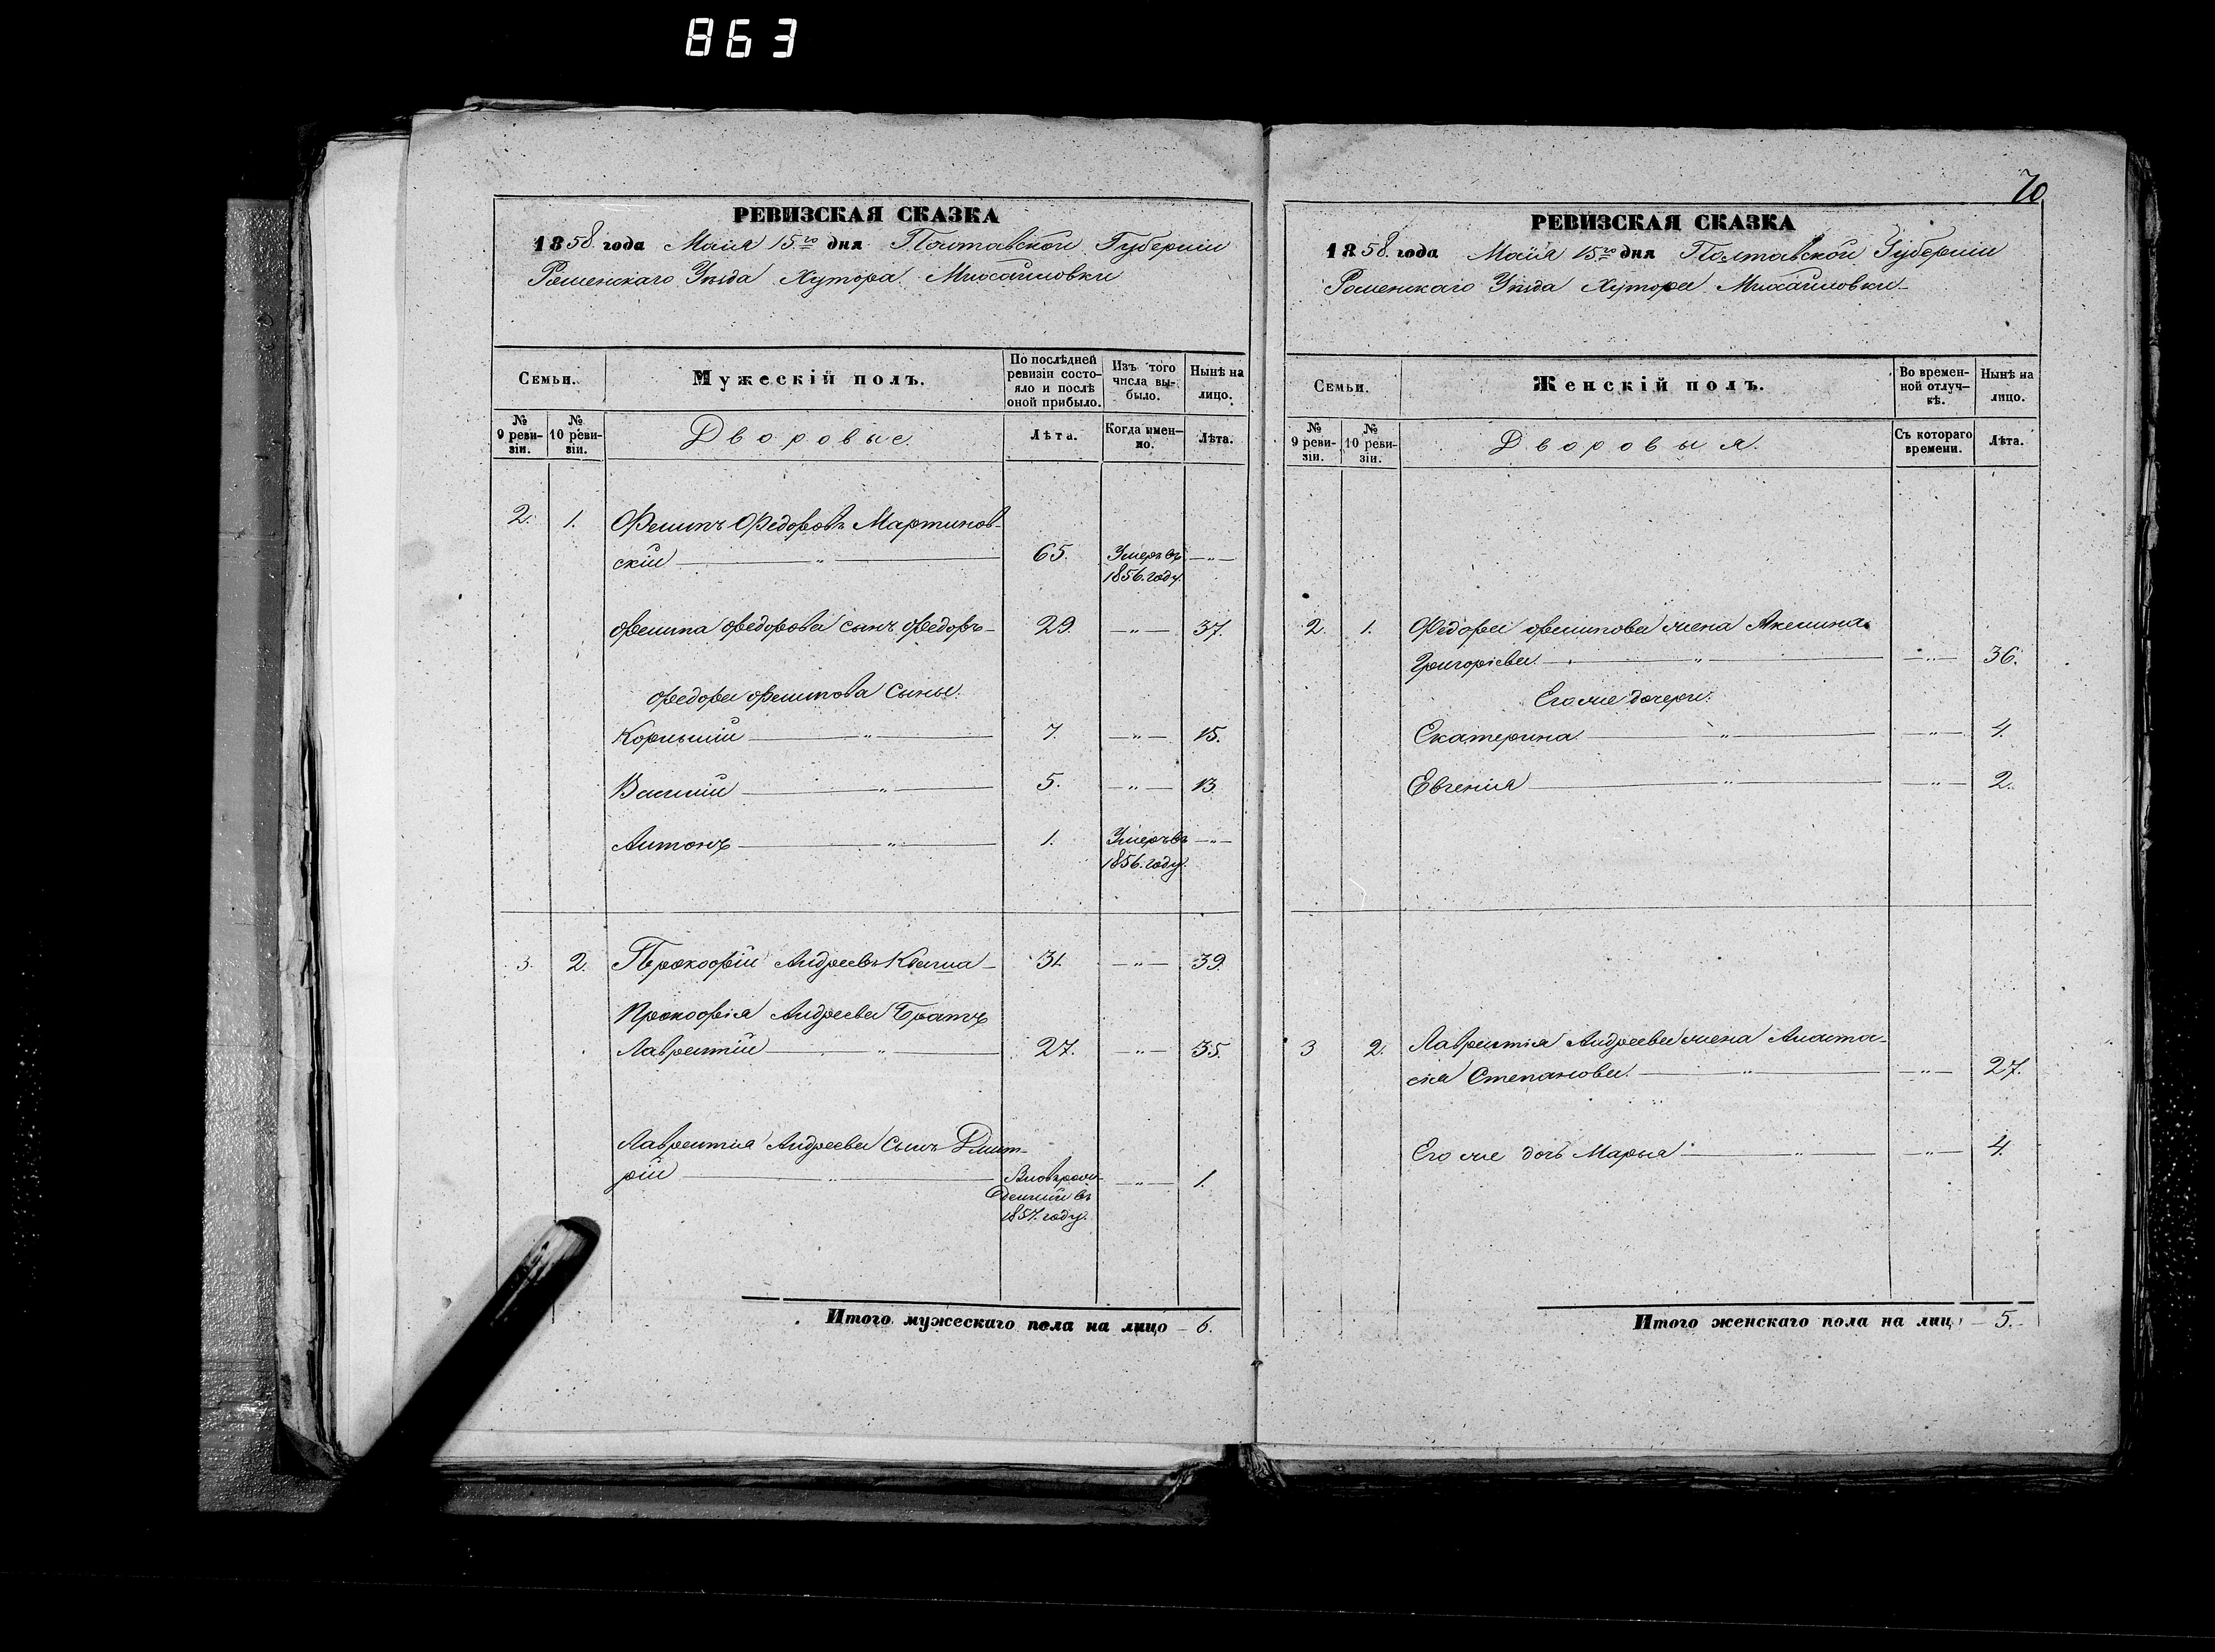 863
РЕВИЗСКАЯ СКАЗКА
1858 года Маія 15го дня Полтавской Губерніи
Роменскаго Уѣзда Хутора Михайловки
Семьи.
Мужескій полъ.
По послѣдней ревизіи состояло и послѣ оной прибыло.
Изъ того числа выбыло.
Нынѣ на лицо.
№ 9 ревизіи.
№ 10 ревизіи.
Дворовые.
Лѣта.
Когда именно.
Лѣта.
2. 1. Филипъ Федоровъ Мартинов-
скій — " — 65. Умеръ въ — " —
1856. году.
Филипа Федорова сынъ Федоръ — 29. — " — 37.
Федора Филипова Сынье.
Корнилій — " — 7. — " — 15.
Василій — " — 5. — " — 13.
Антонъ — " — 1. Умеръ въ — " —
1856. году.
3. 2. Прокофій Андреевъ — 31. — " — 39.
Прокофія Андреева Братъ
Лаврентій — " — 27. — " — 35.
Лаврентія Андреева Сынъ Дмит-
рій — " — Вновърож- — " — 1.
денный въ
1857. году.
Итого мужескаго пола на лицо — 6.
70
РЕВИЗСКАЯ СКАЗКА
1858. года Маія 15го дня Полтавской Губерніи
Роменскаго Уѣзда Хутора Михайловки
Семьи.
Женскій полъ.
Во временной отлучкѣ.
Нынѣ на лицо.
№ 9 ревизіи.
№ 10 ревизіи.
Дворовыя.
Съ котораго времени.
Лѣта.
2. 1. Федора Филипова жена Акелина
Григорьева. — " — — " — 36.
Его же дочери:
Екатерина — " — — " — 4.
Евгенія — " — — " — 2.
3 2. Лаврентія Андреева жена Анаста-
сія Степанова. — " — — " — 27.
Его же дочь Марья — " — — " — 4.
Итого женскаго пола на лицо — 5.